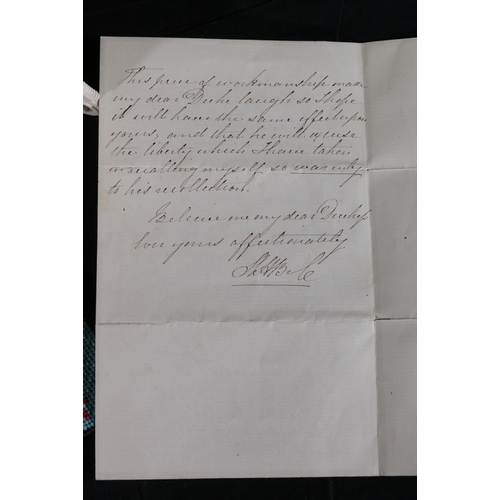 This piece of workmanship made
my dear Duke laugh so I hope
it will have the same effect upon
yours, and that he will excuse
the liberty which I have taken
in recalling myself so warmly
to his recollection.
Believe me my dear Duchess
ever yours affectionately